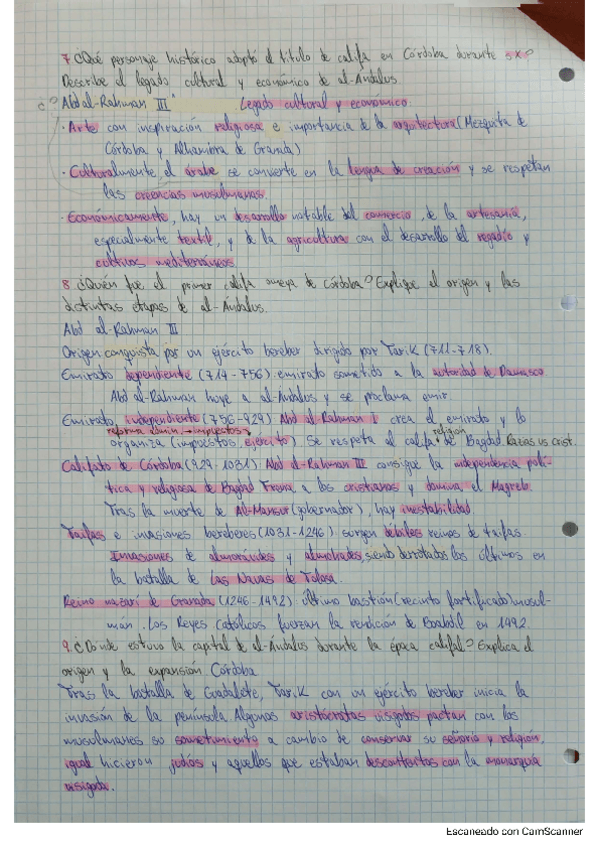 7. ¿Qué personaje histórico adoptó el título de califa en Córdoba durante s.X?
Describe el legado cultural y económico de al-Ándalus.
Abd al-Rahman III Legado cultural y económico
· Arte con inspiración religiosa e importancia de la arquitectura (Mezquita de
Córdoba y Alhambra de Granada)
· Culturalmente, el árabe se convierte en la lengua de creación y se respetan
las creencias musulmanas.
· Económicamente, hay un desarrollo notable del comercio, de la artesanía,
especialmente textil, y de la agricultura con el desarrollo del regadío y
cultivos mediterráneos
8. ¿Quién fue el primer califa omeya de Córdoba? Explique el origen y las
distintas etapas de al-Ándalus.
Abd al-Rahman III
Origen conquista por un ejército bereber dirigido por Tarik (711-718).
Emirato dependiente (714-756) emirato sometido a la autoridad de Damasco
Abd al-Rahman huye a al-Ándalus y se proclama emir.
Emirato independiente (756-929) Abd al-Rahman I crea el emirato y lo
reforma admin. → impuestos religion
organiza (impuestos, ejército) Se respeta al califa de Bagdad. Razas vs crist.
Califato de Córdoba (929-1031) Abd al-Rahman III consigue la independencia polí-
tica y religiosa de Bagdad Frena a los cristianos y domina el Magreb.
Tras la muerte de Al-Mansur (gobernador), hay inestabilidad.
Taifas e invasiones bereberes (1031-1246) surgen débiles reinos de taifas.
Invasiones de almorávides y almohades, siendo derrotados los últimos en
la batalla de Las Navas de Tolosa.
Reino nazarí de Granada (1246-1492) último bastión (recinto fortificado) musul-
mán. Los Reyes Católicos fuerzan la rendición de Boabdil en 1492.
9. ¿Dónde estuvo la capital de al-Ándalus durante la época califal? Explica el
origen y la expansión Córdoba
Tras la batalla de Guadalete, Tarik con un ejército bereber inicia la
invasión de la península. Algunos aristócratas visgodos pactan con los
musulmanes su sometimiento a cambio de conservar su señorío y religión,
igual hicieron judíos y aquellos que estaban descontentos con la monarquía
visigoda.
Escaneado con CamScanner